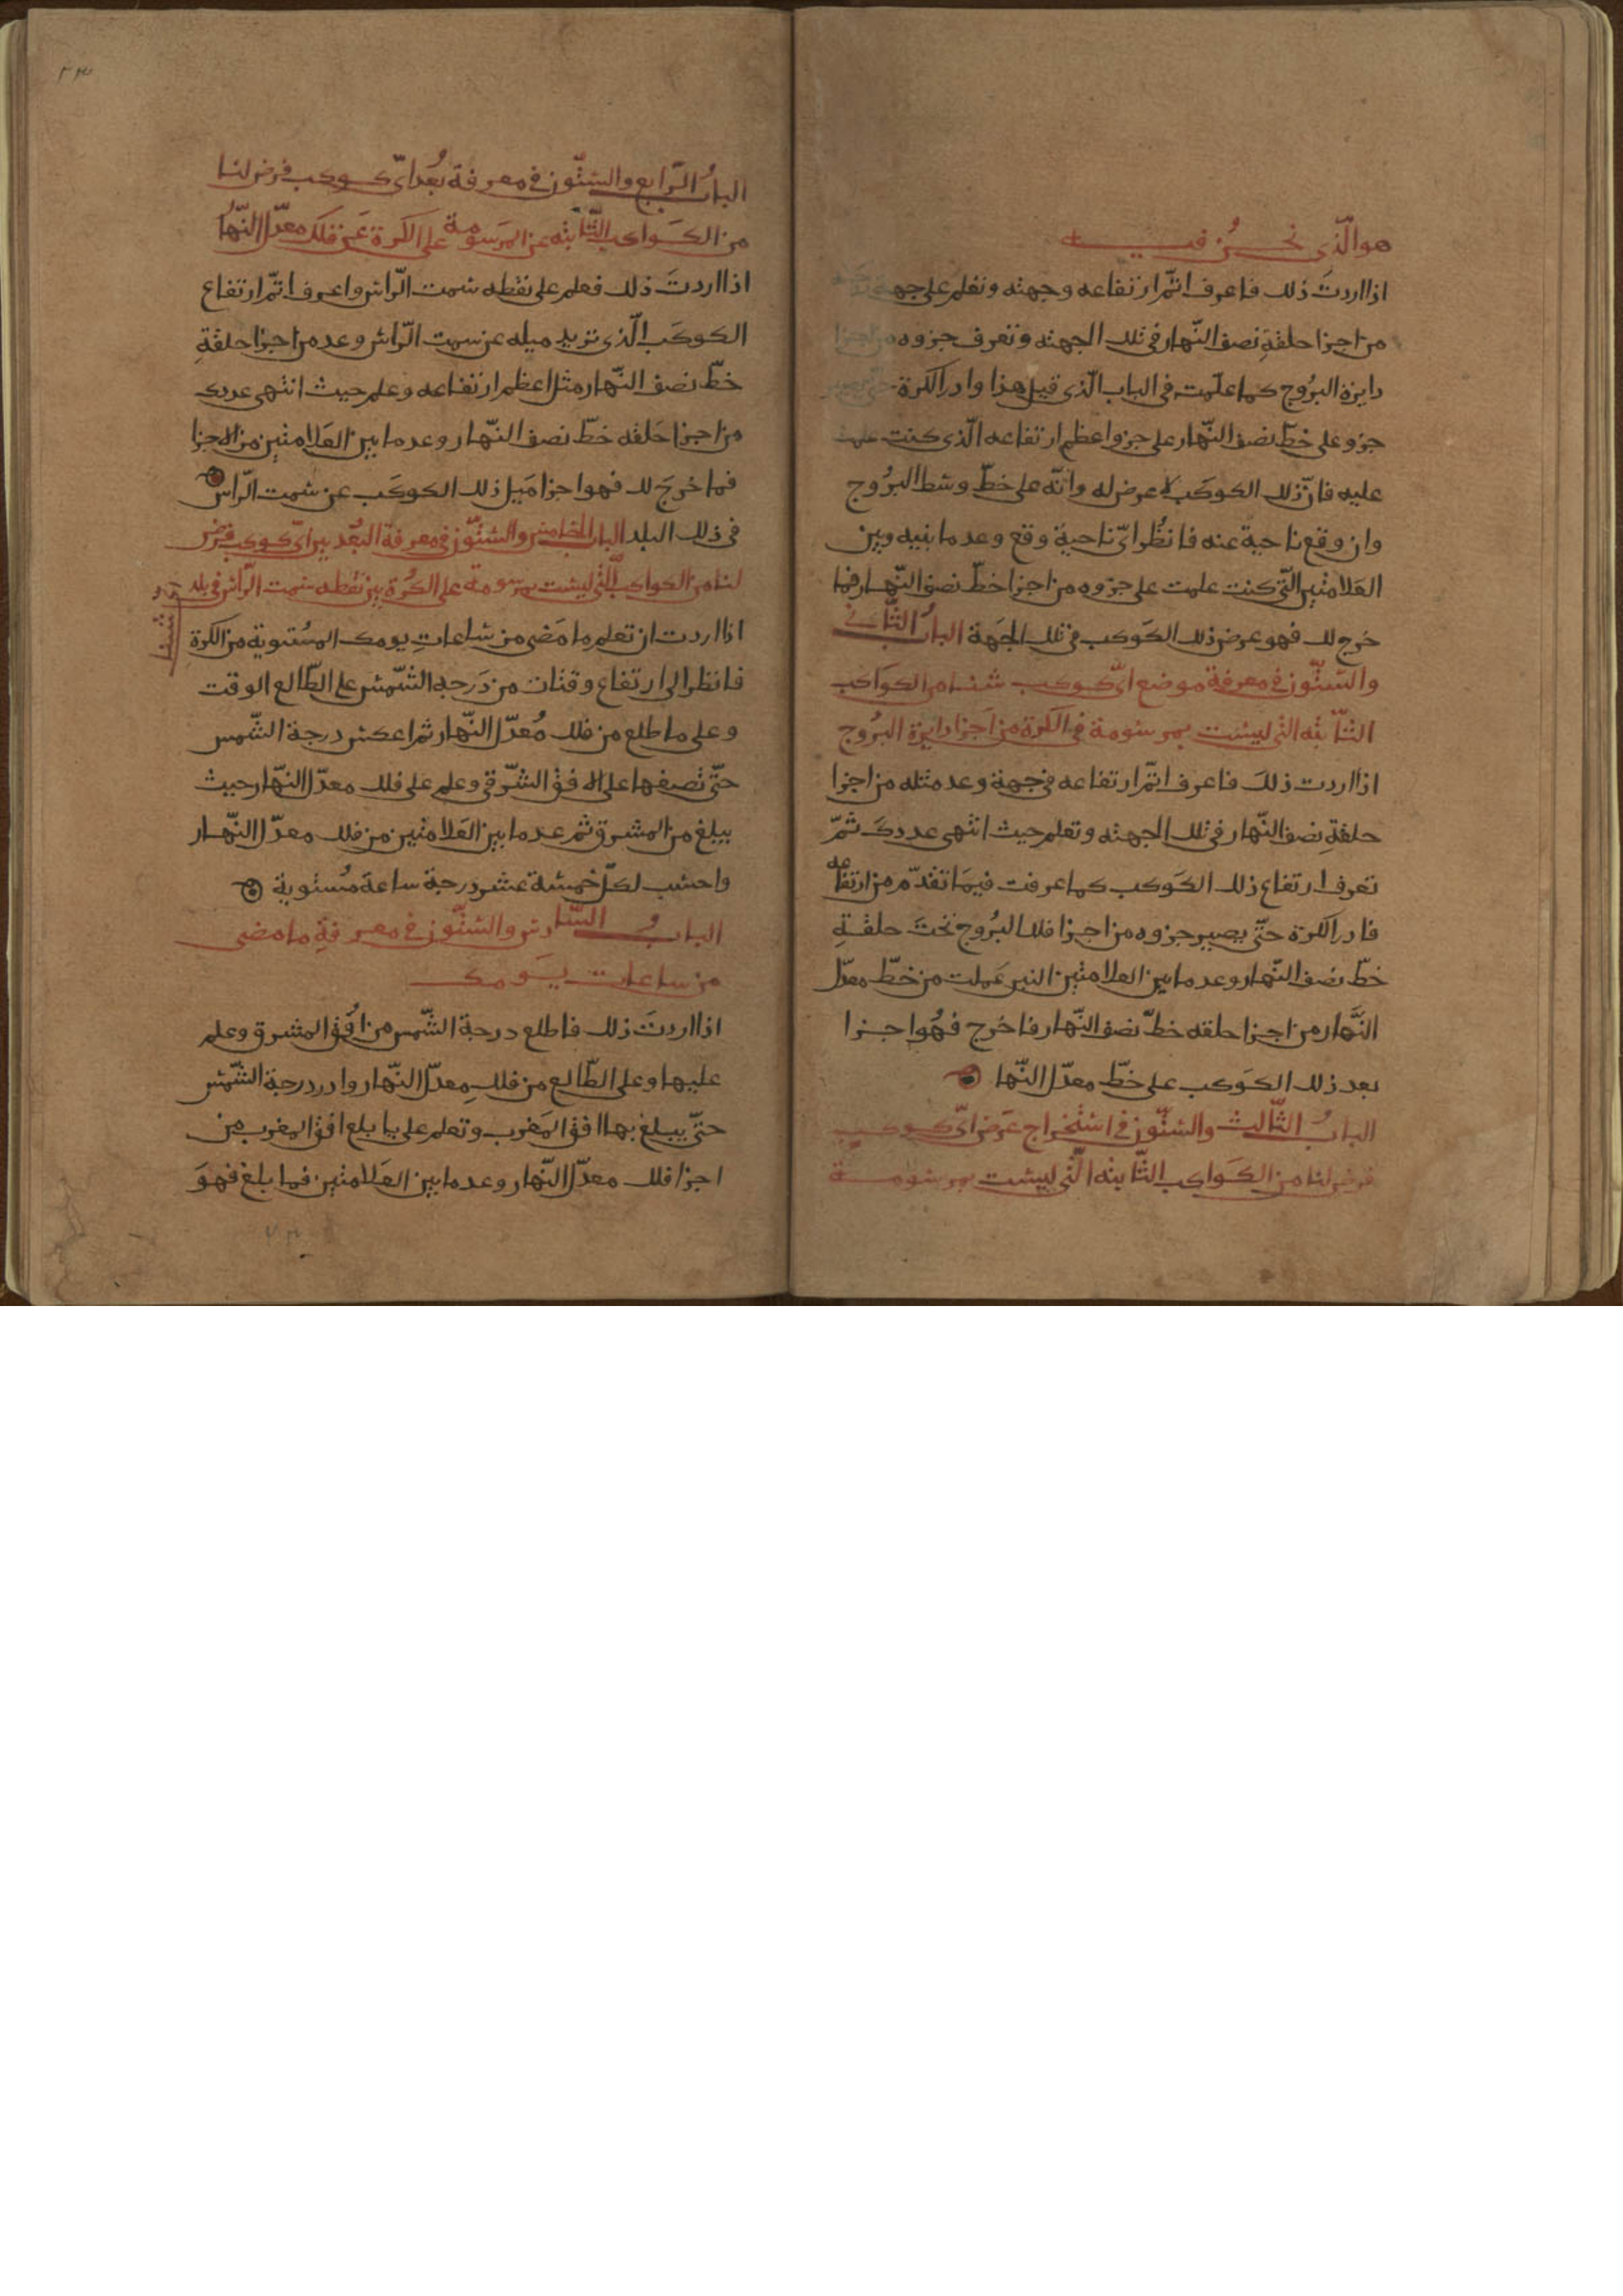 هو الّذى نحن فيه
اذا اردتَ ذلك فاعرف اتمّ ارتفاعه وجهته وتعلم على جهة
من اجزا حلقةِ نصف النّهار فى تلك الجهته وتعرف جزوه من اجزا
دايرة البرُوج كما علّمت فى الباب الّذى قبل هذا وادر الكرة حتّى يصير
جزو على خطّ نصف النّهار على جزو اعظم ارتفاعه الّذى كنت علمت
عليه فانّ ذلك الكوكَب لا عرض له وانّه على خطّ وسْط البرُوج
وان وقع ناحية عنه فانظُر اىّ ناحية وقع وعد ما بينه وبين
العَلامتين الّتى كنت علمت على جزوه من اجزا خطّ نصف النّهار فما
خرج لك فهو عرض ذلك الكوكب فى تلك الجَهة البابُ الثّانى
والستّون فى معرفة موضع اىّ كوكب شئنا من الكواكب
الثّابته التى ليست بمرسومة فى الكرة من اجزا دايرة البرُوج
اذا اردت ذلكَ فاعرف اتمّ ارتفاعه فى جهة وعد مثله من اجزا
حلقةِ نصف النّهار فى تلك الجهته وتعلم حيث انتهى عددكَ ثمّ
تعرف ارتفاع ذلك الكَوكب كما عرفت فيمَا تقدّم من ارتفاعه
فادر الكرة حتّى يصير جزوه من اجزا فلك البرُوج تحتَ حلقةِ
خطّ نصف النّهار وعد ما بين العلامتين التى عَملت من خطّ معدّل
النَّهار من اجزا حلقه خطّ نصف النّهار فاخرج فهُوا جزا
بعد ذلك الكَوكب على خطّ معدّل النّها
البابُ الثّالث والستّون فى استخراج عَرض اىّ كوكبٍ
فرض لنا من الكَواكب الثّابته الّتى ليست بمرسُومة
البابُ الرّابع والستّون فى معرفة بُعد اىّ كوكب فرض لنا
من الكَواكب الثّابته عن المرَسومة على الكرة عَن فلك معدّل النّهُا
اذا اردتَ ذلك فعلم على نقطه سَمت الرّاس واعرف اتمّ ارتفاع
الكوكَب الّذى تريد ميله عن سمت الرّاس وعد من اجزا حلقةِ
خطّ نصف النّهار مثل اعظم ارتفاعه وعلم حيث انتهى عددك
من اجزا حَلقه خطّ نصف النّهار وعد ما بين العَلامتين من الاجزا
فما خرجَ لك فهوا جزا مَيل ذلك الكوكَب عن سَمت الرّاس
فى ذلك البلد الباب الخامس والستّون فى معرفة البُعد بين اىّ كوكب فرض
لنا من الكواكب الّتى ليست بمرسومة على الكُرة بين نُقطه سَمت الرّاس فى بلد
شئنا
اذا اردت ان تعلم ما مَضى من سَاعاتِ يومك المسُتوية من الكرة
فانظر الى ارتفاع وقتك من دَرجه الشّمس على الطّالع الوقت
وعلى ما طلع من فلك مُعدّل النّهار ثم اعكس درجة الشّمس
حتّى تصفها على الافق الشّرقى وعلم على فلك معدّل النّهار حيث
يبلغ من المشرق ثم عد ما بين العَلامتين من فلك معدّل النّهار
واحسب لكلّ خمسة عشر درجة ساعة مُستوية
البابُ السّادس والستّون فى معرفةِ ما مضى
من ساعات يَومك
اذا اردتَ ذلك فاطلع درجة الشّمس من افُق المشرق وعلم
عليها وعلى الطّالع من فلك معدّل النّهار وادر درجة الشّمْس
حتّى يبلغ بها افق المَغرب وتعلم على يا بلع افق المغرب من
اجزا فلك معدّل النّهار وعد ما بين العَلامتين فما بلغ فهوَ